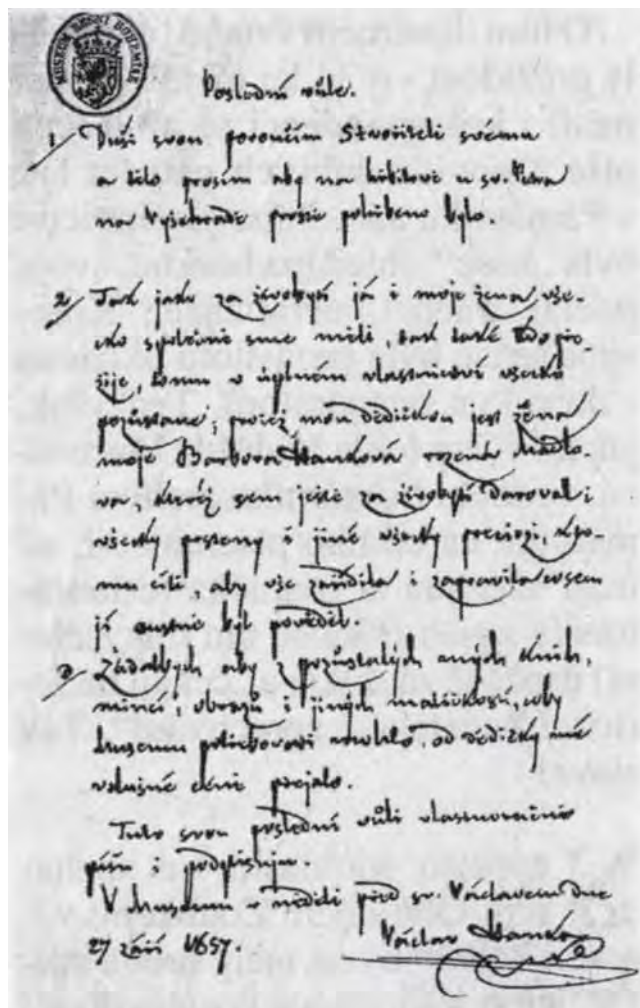 MUSEUM REGNI BOHEMIAE
Poslední vůle.
1. Duši svou poroučím Stvořiteli svému
a tělo prosím aby na hřbitově u sv. Petra
na Vyšehradě prostě pohřbeno bylo.
2. Tak jako za živobytí já i moje žena vše-
cko společně sme měli, tak také kdo pře
žije, tomu v úplném vlastnictví všecko
pozůstane; pročež mou dědičkou jest žena
moje Barbora Hanková rozená
, kteréž sem ještě za živobytí daroval i
všecky prsteny i jiné všecky preciosi, k to-
mu cíli, aby vše zřídila i zapravila co sem
já ústně byl pověděl.
3. Žádalbych aby z pozůstalých mých knih,
mincí, obrazů i jiných maličkostí, coby
Museum potřebovati mohlo, od dědičky mé
přijalo.
Tuto svou poslední vůli vlastnoručně
píši i podpisuji.
V Museum v neděli před sv. Václavem dne
27 září 1857.
Václav Hanka